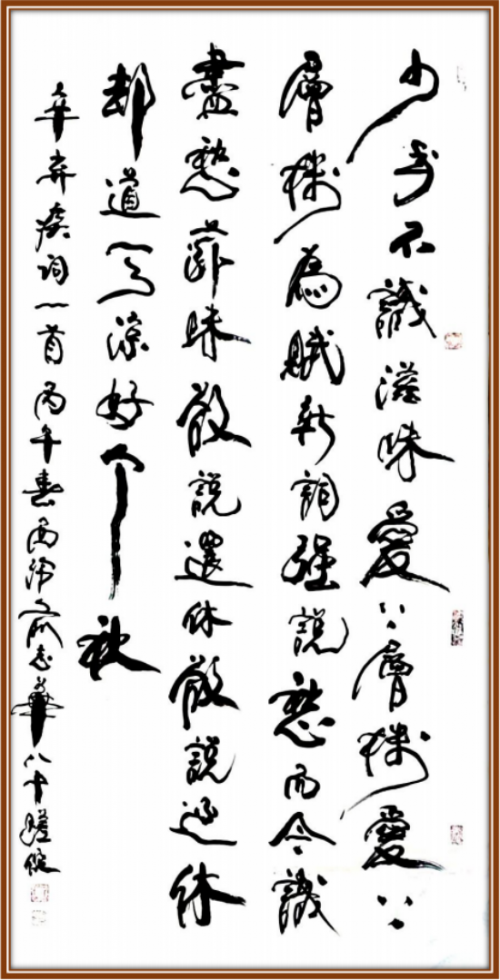 少年不識滋味愛〻層楼愛〻
層楼為賦新詞强說愁而今識
盡愁滋味欲說還休欲說還休
却道天涼好个秋
辛弃疾詞一首丙午春西志華八十